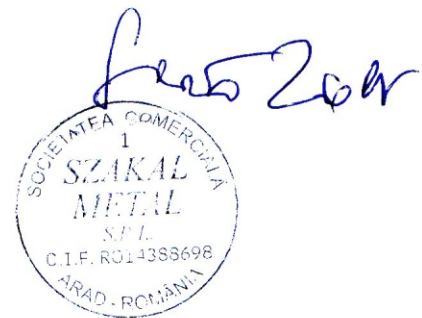 SOCIETATEA COMERCIALĂ
1
SZAKAL
METAL
S.R.L.
C.I.F. RO14388698
ARAD - ROMÂNIA